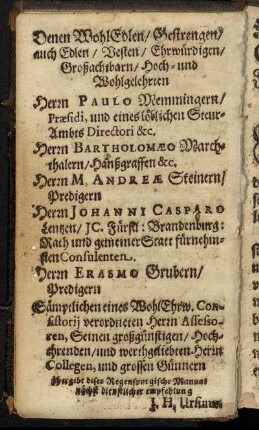 Denen WohlEdlen/ Gestrengen/
auch Edlen/ Vesten/ Ehrwürdigen/
Großachtbarn/ Hoch- und
Wohlgelehrten
Herrn PAULO Memmingern/
Præsidi, und eines löblichen Steur-
Ambts Directori &c.
Herrn BARTHOLOMÆO March-
thalern/ Hanßgraffen &c.
Herrn M. ANDREÆ Steinern/
Predigern
Herrn JOHANNI CASPARO
Lentzen/ JC. Fürstl: Brandenburg:
Rath und gemeiner Statt fürnehm-
sten Consulenten.
Herrn ERASMO Grubern/
Predigern
Sämptlichen eines WohlEhrw. Con-
sistorij verordneten Herrn Assesso-
ren, Seinen großgünstigen/ Hoch-
ehrenden/ und werthgeliebten Herrn
Collegen, und grossen Gönnern
übergibt dises Regenspurgische Mannas
nächst dienstlicher empfehlung
J. H. Ursinus.